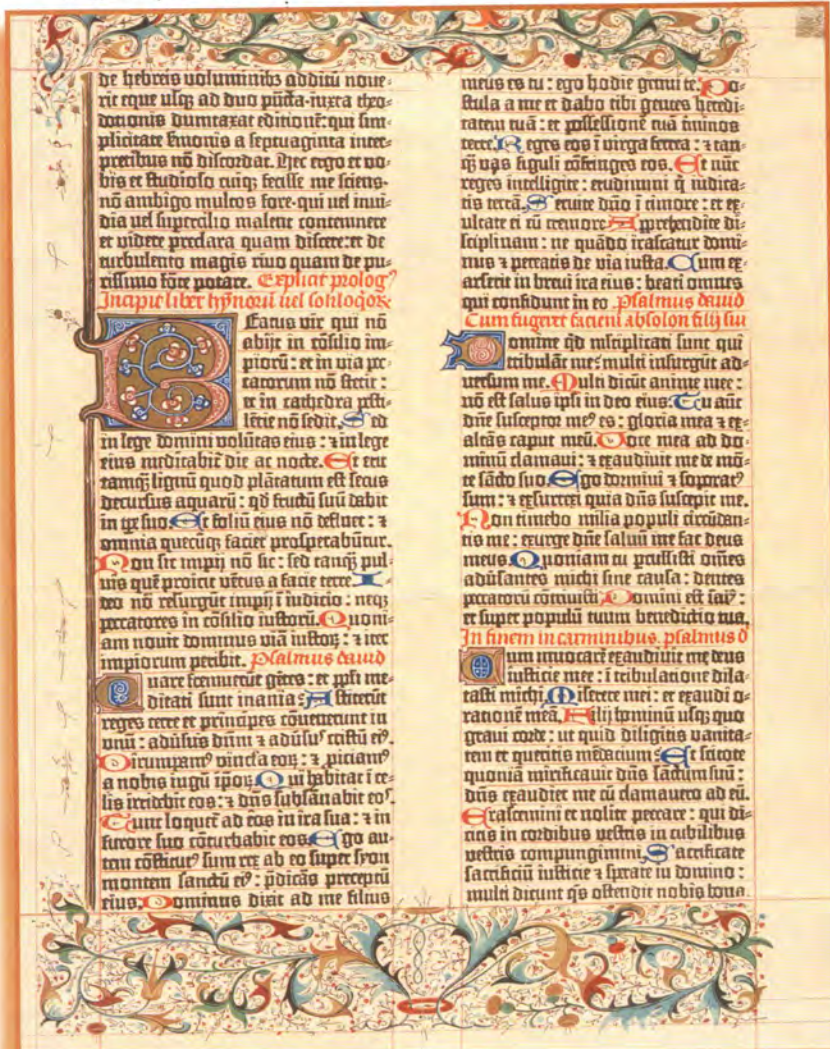 de hebreis uoluminibꝫ additū noue-
rit eque usqꝫ ad duo pūcta·iuxta theo-
dotionis dumtaxat editionē: qui sim-
plicitate sermonis a septuaginta inter-
pretibus nō discordat. Hec ergo et vo-
bis et studioso cuiqꝫ fecisse me sciens·
nō ambigo multos fore·qui uel inui-
dia uel supercilio malent contemnere
et videre preclara quam discere: et de
turbulento magis riuo quam de pu-
rissimo fōte potare. Explicit prologꝰ
Incipit liber hymnorū uel soliloqioꝝ
Beatus vir qui nō
abijt in cōsilio im-
piorū: et in via pec-
catorum nō stetit:
et in cathedra pesti-
lētie nō sedit. Sed
in lege domini volūtas eius: ⁊ in lege
eius meditabit̄ die ac nocte. Et erit
tamqꝫ lignū quod plātatum est secus
decursus aquarū: qd̄ fructū suū dabit
in tp̄e suo. Et foliū eius nō defluet: ⁊
omnia quecūqꝫ faciet prosperabūtur.
Non sic impij nō sic: sed tanqꝫ pul-
uis quē proicit vētus a facie terre. I-
deo nō resurgūt impij ī iudicio: neqꝫ
peccatores in cōsilio iustorū. Quoni-
am nouit dominus viā iustoꝝ: ⁊ iter
impiorum peribit. Psalmus dauid
Quare fremuerūt gētes: et ppl̄i me-
ditati sunt inania. Astiterūt
reges terre et principes cōuenerunt in
vnū: aduˢus dn̄m ⁊ aduˢuˢ cristū eiꝰ.
Dirumpamꝰ vincla eoꝝ: ⁊ piciamꝰ
a nobis iugū ipoꝝ. Qui habitat ī ce-
lis irridebit eos: ⁊ dn̄s subsānabit eoˢ.
Tunc loquet̄ ad eos in ira sua: ⁊ in
furore suo cōturbabit eos. Ego au-
tem cōstitutꝰ sum rex ab eo super syon
montem sanctū eiꝰ: p̄dicās preceptū
eius. Dominus dixit ad me filius
meus es tu: ego hodie genui te. Po-
stula a me et dabo tibi gentes heredi-
tatem tuā: et possessionē tuā t̄minos
terre. Reges eos ī virga ferrea: ⁊ tan-
qꝫ vas figuli cōfringes eos. Et nūc
reges intelligite: erudimini q̇ iudica-
tis terrā. Seruite dn̄o ī timore: et ex-
ultate ei cū tremore. Apprehendite di-
sciplinam: ne quādo irascatur domi-
nus ⁊ pereatis de via iusta. Cum ex-
arserit in breui ira eius: beati omnes
qui confidunt in eo. Psalmus dauid
Cum fugeret a facieni absolon filij sui
Domine qd̄ mĺtiplicati sunt qui
tribulāt me: multi insurgūt ad-
uersum me. Multi dicūt anime mee:
nō est salus ipsi in deo eius. Tu aūt
dn̄e susceptor meꝰ es: gloria mea ⁊ ex-
altās caput meū. Voce mea ad do-
minū clamaui: ⁊ exaudiuit me de mō-
te sācto suo. Ego dormiui ⁊ soporatꝰ
sum: ⁊ exsurrexi quia dn̄s suscepit me.
Non timebo milia populi circūdan-
tis me: exurge dn̄e saluū me fac deus
meus. Quoniam tu pcussisti om̄es
aduˢantes michi sine causa: dentes
peccatorū cōtriuisti. Domini est salꝰ:
et super populū tuum benedictio tua.
In finem in carminibus. psalmus d
Cum inuocarē exaudiuit me deus
iusticie mee: ī tribulatione dila-
tasti michi. Miserere mei: et exaudi o-
rationē meā. Filij hominū usqꝫ quo
graui corde: ut quid diligitis vanita-
tem et queritis mēdacium? Et scitote
quoniā mirificauit dn̄s sanctum suū:
dn̄s exaudiet me cū clamauero ad eū.
Irascemini et nolite peccare: qui di-
citis in cordibus vestris in cubilibus
vestris compungimini. Sacrificate
sacrificiū iusticie ⁊ sperate in domino:
multi dicunt qˢ ostendit nobis bona.